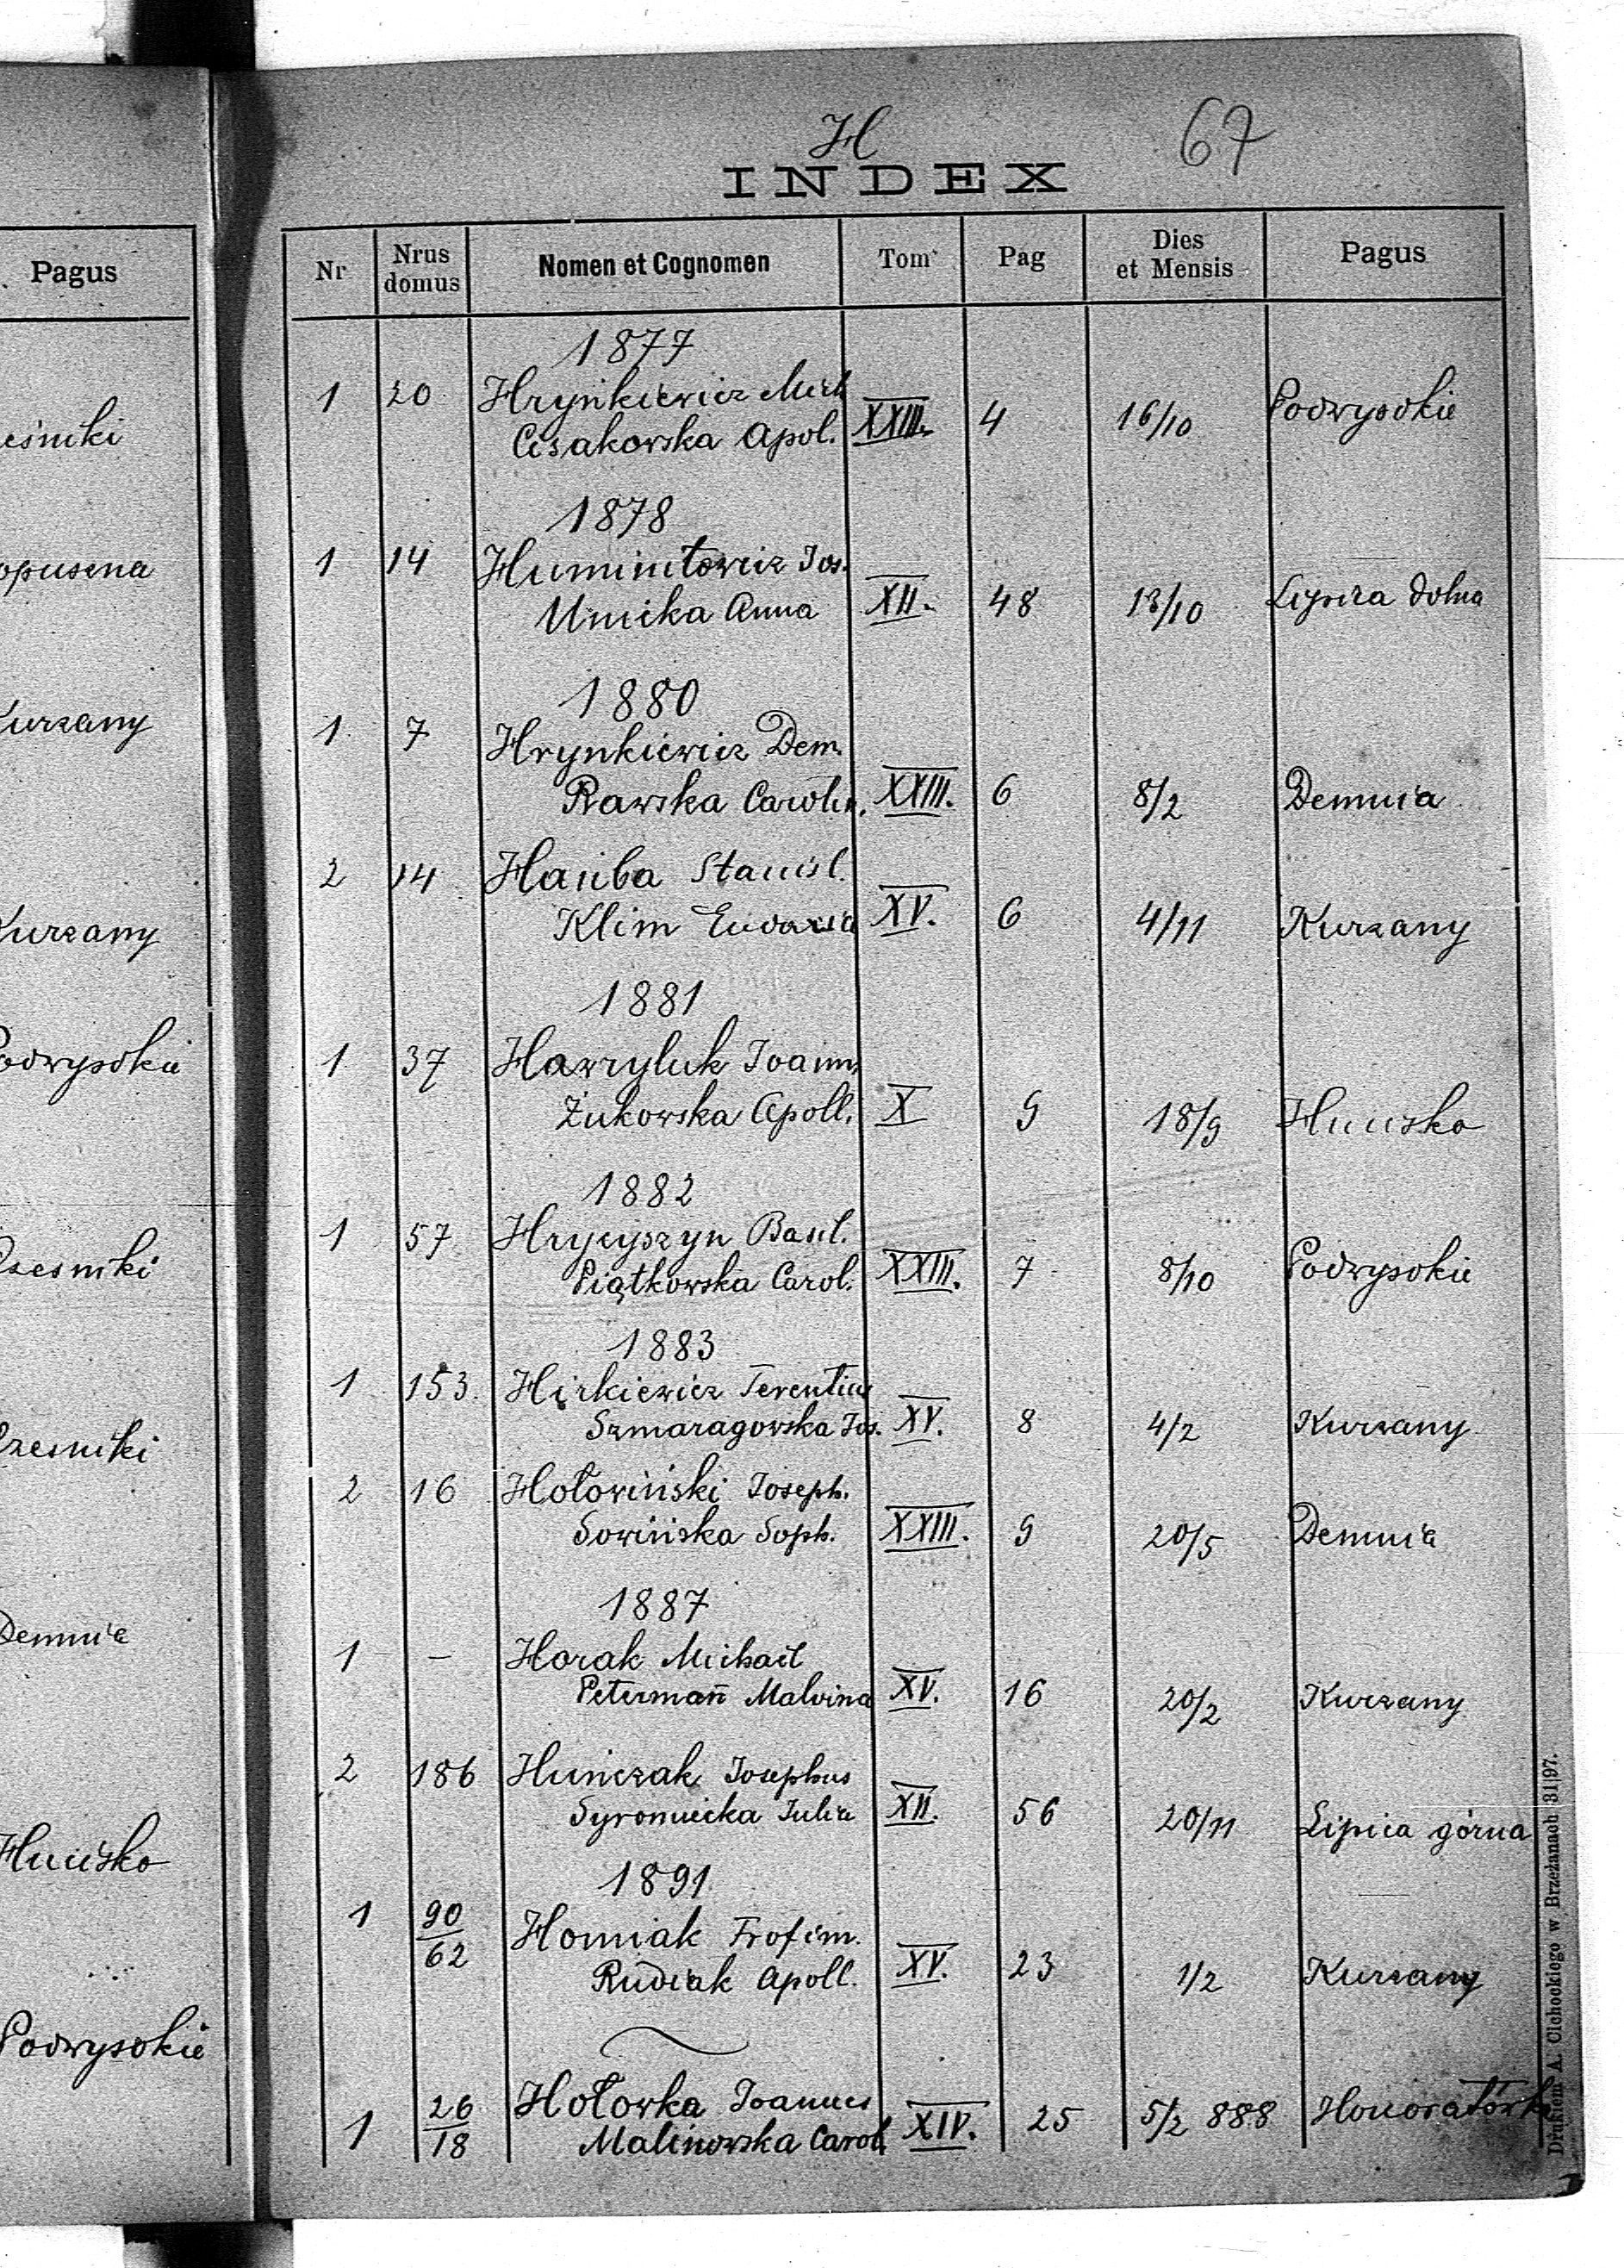 Pagus
eśniki
opuszna
Kurzany
Kurzany
Podwysokie
Czesniki
Czesniki
Demnia
Hucisko
Podwysokie
H
67
INDEX
Nr Nrus domus Nomen et Cognomen Tom Pag Dies et Mensis Pagus
1877
1 20 Hrynkiewicz Mich
Czakowska Apol. XXIII. 4 16/10 Podwysokie
1878
1 14 Jos.
Unicka Anna XII. 48 13/10 Lipica dolna
1880
1 7 Hrynkiewicz Dem.
Rawska Carolin. XXIII. 6 8/2 Demnia
2 14 Hańba Stanisl.
Klim XV. 6 4/11 Kurzany
1881
1 37 Hawryluk Joann.
Żukowska Apoll. X 9 18/9 Hucisko
1882
1 57 Hrycyszyn Basil.
Piątkowska Carol. XXIII. 7 8/10 Podwysokie
1883
1 153. Hickiewicz Terentius
Szmaragowska Jos. XV. 8 4/2 Kurzany
2 16 Hołowiński Joseph.
Sowińska Soph. XXIII. 9 20/5 Demnia
1887
1 – Horak Michael
Petermañ Malvina XV. 16 20/2 Kurzany
2 186 Huńczak Josephus
Syromicka Julia XII. 56 20/11 Lipica górna
1891
1 90/62 Homiak Trofim.
Rudiak Apoll. XV. 23 1/2 Kurzany
1 26/18 Hołowka Joannes
Malinowska Carol. XIV. 25 5/2 888 Honoratówka
Drukiem A. Cichockiego w Brzeżanach 31|97.